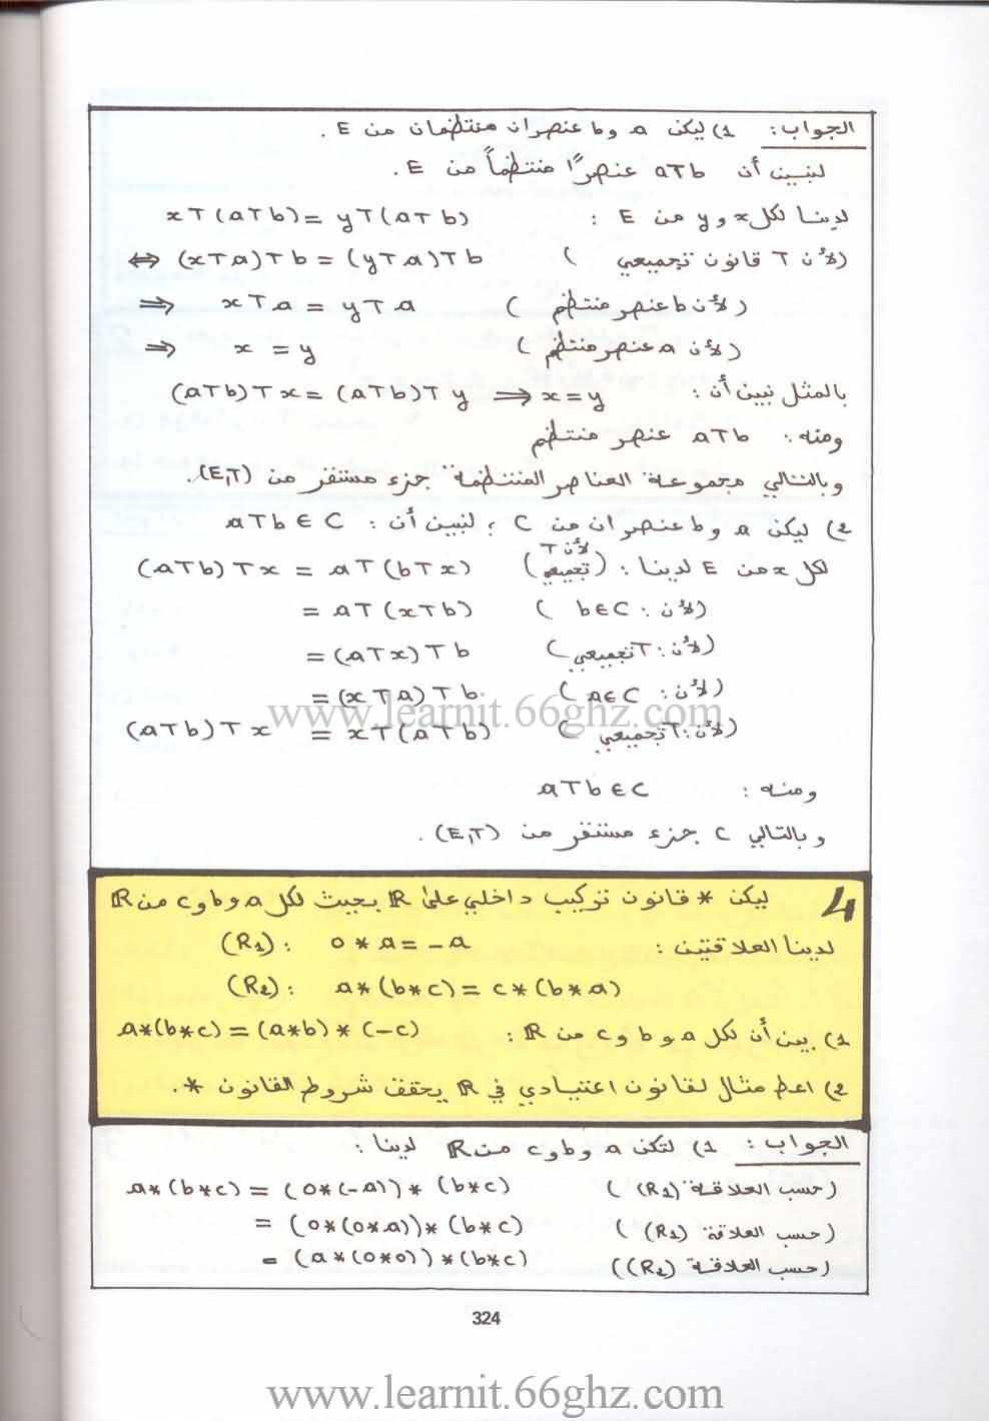 الجواب: 1) ليكن a و b عنصران منتظمان من E.
لنبين أن aTb عنصرًا منتظماً من E.
لدينا لكل x و y من E : xT(aTb) = yT(aTb)
⇔ (xTa)Tb = (yTa)Tb (لأن T قانون تجميعي)
⇒ xTa = yTa (لأن b عنصر منتظم)
⇒ x = y (لأن a عنصر منتظم)
بالمثل نبين أن : (aTb)Tx = (aTb)Ty ⇒ x=y
ومنه : aTb عنصر منتظم
وبالتالي مجموعة العناصر المنتظمة جزء مستقر من (E,T).
2) ليكن a و b عنصران من C ؛ لنبين أن : aTb∈C
لكل x من E لدينا : (لأن T تجميعي) (aTb)Tx = aT(bTx)
= aT(xTb) (لأن : b∈C)
= (aTx)Tb (لأن : T تجميعي)
= (xTa)Tb (لأن : a∈C)
(aTb)Tx = xT(aTb) (لأن : T تجميعي)
www.learnit.66ghz.com
ومنه : aTb∈C
وبالتالي C جزء مستقر من (E,T).
4 ليكن * قانون تركيب داخلي على ℝ بحيث لكل a و b و c من ℝ
لدينا العلاقتين : (R1) : 0*a = -a
(R2) : a*(b*c) = c*(b*a)
1) بين أن لكل a و b و c من ℝ : a*(b*c) = (a*b)*(-c)
2) اعط مثال لقانون اعتيادي في ℝ يحقق شروط القانون *.
الجواب : 1) لتكن a و b و c من ℝ لدينا :
a*(b*c) = (0*(-a))*(b*c) (حسب العلاقة (R1))
= (0*(0*a))*(b*c) (حسب العلاقة (R1))
= (a*(0*0))*(b*c) (حسب العلاقة (R2))
324
www.learnit.66ghz.com